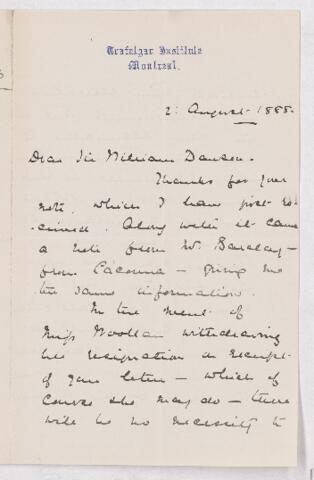 Trafalgar Institute
Montreal.
2: August 1888.
Dear Sir William Dawson.
Thanks for your
note, which I have just re-
ceived. Along with it came
a note from Dr. Barclay -
from Cacouna - giving me
the same information.
In the event of
Miss Woollan withdrawing
her resignation on receipt
of your letter - which of
course she may do - there
will be no necessity to